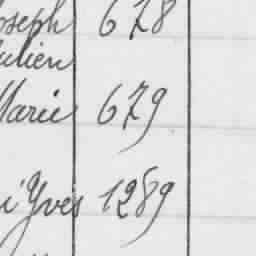 oseph 678
ulien
Marie 679
i Yves 1289